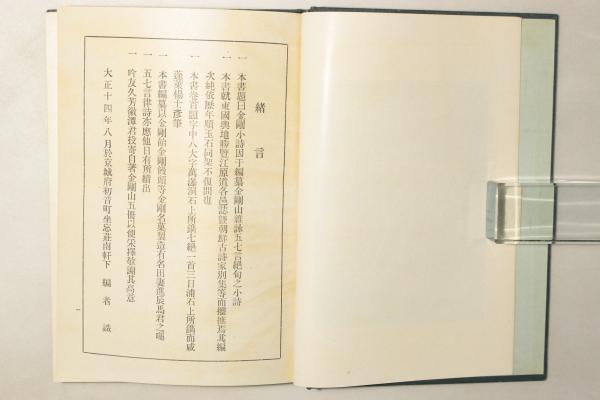 緒言
一 本書題曰金剛小詩因于編纂金剛山雜詠五七言絕句之小詩
一 本書就東國輿地勝覽江原道各邑誌暨朝鮮古詩家別集等而攟摭焉其編
次純依歷年順玉石同架不復問也
一 本書卷首題字中八大字萬瀑洞石上所鐫七絕一首三日浦石上所鐫而咸
蓬萊楊士彥筆
一 本書編纂以金剛飴金剛饅頭等金剛名菓製造有名田妻進辰馬君之囑
一 五七言律詩亦應他日有所續出
一 吟友久芳徹潭君投寄自著金剛山五冊以便采擇敬謝其高意
大正十四年八月於京城府初音町坐忘莊南軒下 編者識